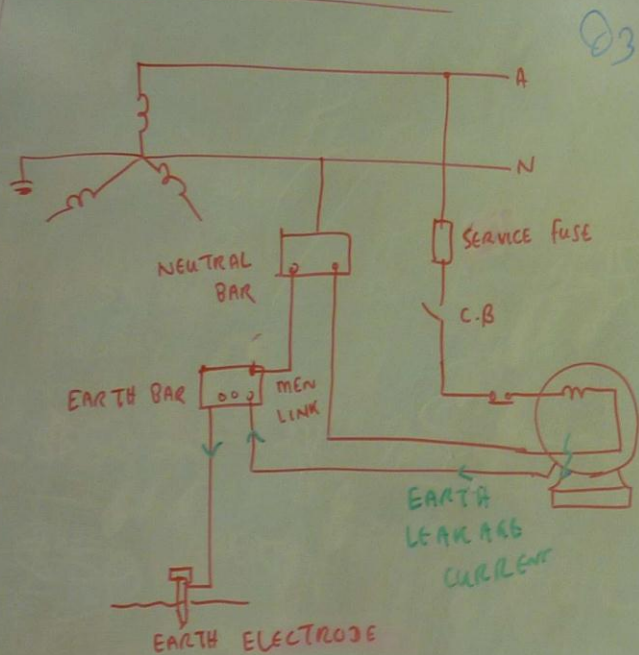 Q3
A
N
SERVICE FUSE
NEUTRAL
BAR
C.B
EARTH BAR
MEN
LINK
EARTH
LEAKAGE
CURRENT
EARTH ELECTRODE